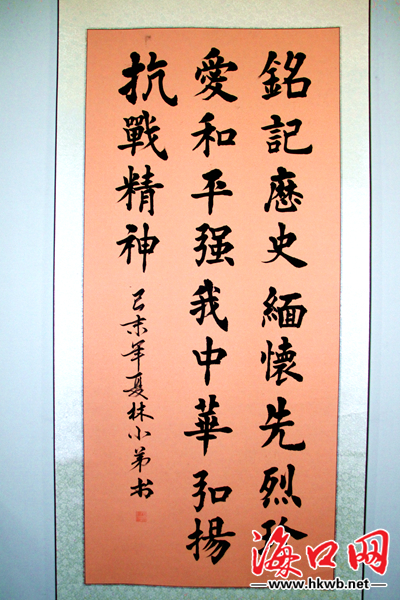 銘記歷史緬懷先烈珍
愛和平强我中華弘揚
抗戰精神
己未年夏林小弟书
海口网
www.hkwb.net